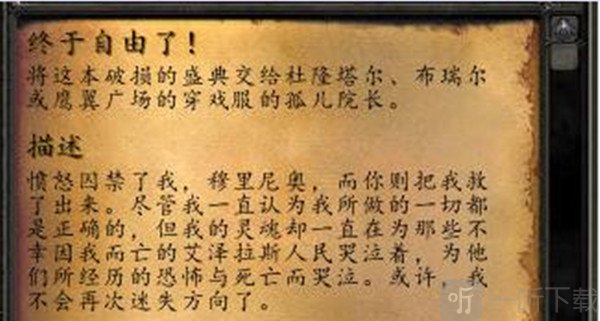 终于自由了！
将这本破损的盛典交给杜隆塔尔、布瑞尔
或鹰翼广场的穿戏服的孤儿院长。
描述
愤怒囚禁了我，穆里尼奥，而你则把我救
了出来。尽管我一直认为我所做的一切都
是正确的，但我的灵魂却一直在为那些不
幸因我而亡的艾泽拉斯人民哭泣着，为他
们所经历的恐怖与死亡而哭泣。或许，我
不会再次迷失方向了。
听 一听下载